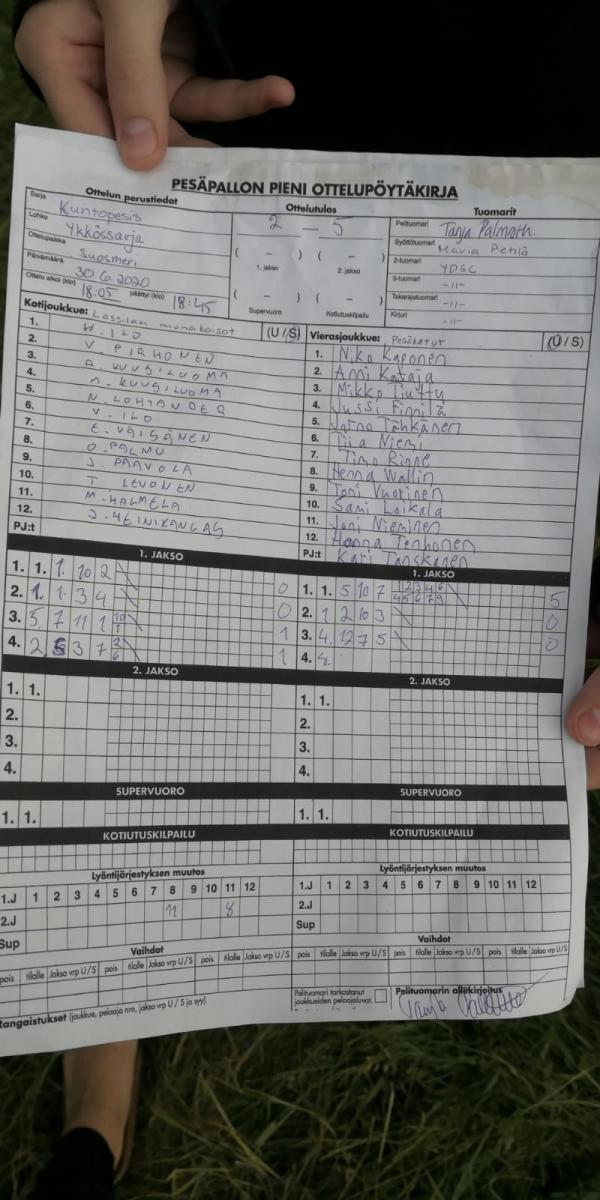 PESÄPALLON PIENI OTTELUPÖYTÄKIRJA
Ottelun perustiedot
Sarja Kuntopesis
Lohko Ykkössarja
Ottelupaikka Suosmeri
Päivämäärä 30.6.2020
Ottelu alkoi (klo) 18:05 päättyi (klo) 18:45
Ottelutulos
2 — 5
( – ) ( – )
1. jakso 2. jakso
( – ) ( – )
Supervuoro Kotiutuskilpailu
Tuomarit
Pelituomari Tanja Palmroth
Syöttötuomari Maria Pietilä
2-tuomari YDGC
3-tuomari -11-
Takarajatuomari -11-
Kirjuri -11-
Kotijoukkue: Lassilan munakoisot (U / S)
1. H. ILO
2. V. PIRHONEN
3. A. KUUSILUOMA
4. M. KUUSILUOMA
5. N. LOHTANDER
6. V. ILO
7. E. VÄISÄNEN
8. O. PALMU
9. J. PAAVOLA
10. T. LEVONEN
11. M. HALMELA
12. J. HEINIKANGAS
PJ:t
Vierasjoukkue: Pesäketut (U / S)
1. Niko Kaponen
2. Ami Kataja
3. Mikko
4. Jussi Finnilä
5. Jarno Tähkänen
6. Tiia Niemi
7. Timo Rinne
8. Henna Wallin
9. Toni Vuorinen
10. Sami Loikala
11. Joni Nieminen
12. Hanna Tenhonen
PJ:t Kari Tanskanen
1. JAKSO
1. 1. 1. 10 2 0
2. 1. 1. 3 4 0
3. 5. 7 11 1 10 1 1
4. 2. 5 3 7 2 6 1
1. JAKSO
1. 1. 5 10 7 1 2 3 4 6 4 5 6 7 9 5
2. 1 2 10 3 0
3. 4. 12 7 5 0
4. 8.
2. JAKSO
1. 1.
2.
3.
4.
2. JAKSO
1. 1.
2.
3.
4.
SUPERVUORO
1. 1.
SUPERVUORO
1. 1.
KOTIUTUSKILPAILU
KOTIUTUSKILPAILU
Lyöntijärjestyksen muutos
1.J 1 2 3 4 5 6 7 8 9 10 11 12
2.J 11 8
Sup
Lyöntijärjestyksen muutos
1.J 1 2 3 4 5 6 7 8 9 10 11 12
2.J
Sup
Vaihdot
pois tilalle Jakso vrp U / S pois tilalle Jakso vrp U / S pois tilalle Jakso vrp U / S
Vaihdot
pois tilalle Jakso vrp U / S pois tilalle Jakso vrp U / S pois tilalle Jakso vrp U / S
Pelituomari tarkastanut
joukkueiden pelaajaluvat.
Pelituomarin allekirjoitus
Rangaistukset (joukkue, pelaaja nro, jakso vrp U / S ja syy)